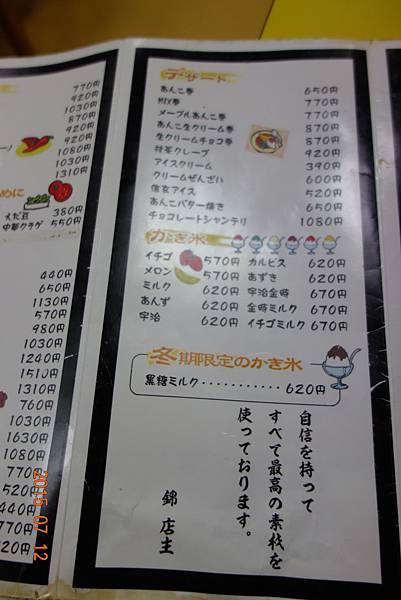 770円
920円
1030円
870円
920円
920円
1080円
1030円
1310円
めに
えだ豆 380円
中華クラゲ 550円
440円
650円
1130円
570円
980円
1030円
1240円
1510円
1310円
760円
1030円
1630円
1080円
770円
520円
440円
770円
220円
デザート
あんこ巻 650円
MIX巻 770円
メープルあんこ巻 770円
あんこ生クリーム巻 870円
生クリームチョコ巻 870円
抹茶クレープ 920円
アイスクリーム 390円
クリームぜんざい 600円
信玄アイス 520円
あんこバター焼き 650円
チョコレートシャンテリ 1080円
かき氷
イチゴ 570円 カルピス 620円
メロン 570円 あずき 620円
ミルク 620円 宇治金時 670円
あんず 620円 金時ミルク 670円
宇治 620円 イチゴミルク 670円
冬期限定のかき氷
黒糖ミルク・・・・・・・・・・・620円
自信を持って
すべて最高の素材を
使っております。
錦 店主
2015 07 12